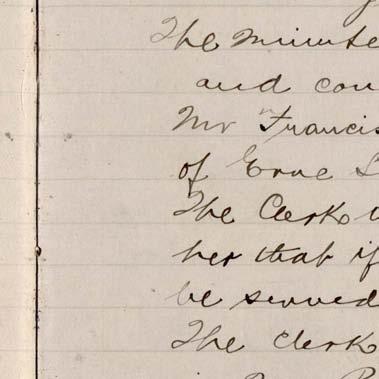 The Minute
and con
Mr Francis
of Erne
The Clerk
her that if
be served
The Clerk